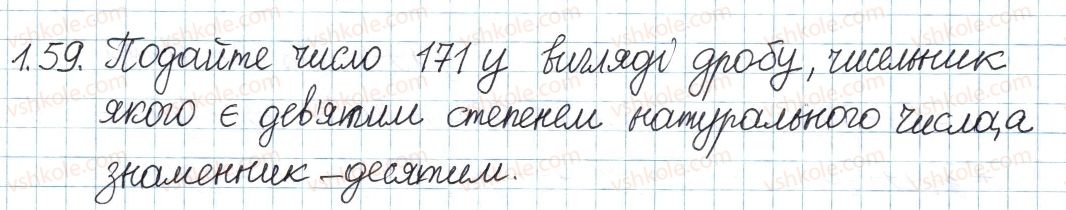 1.59. Подайте число 171 у вигляді дробу, чисельник
якого є дев'ятим степенем натурального числа, а
знаменник – десятим.